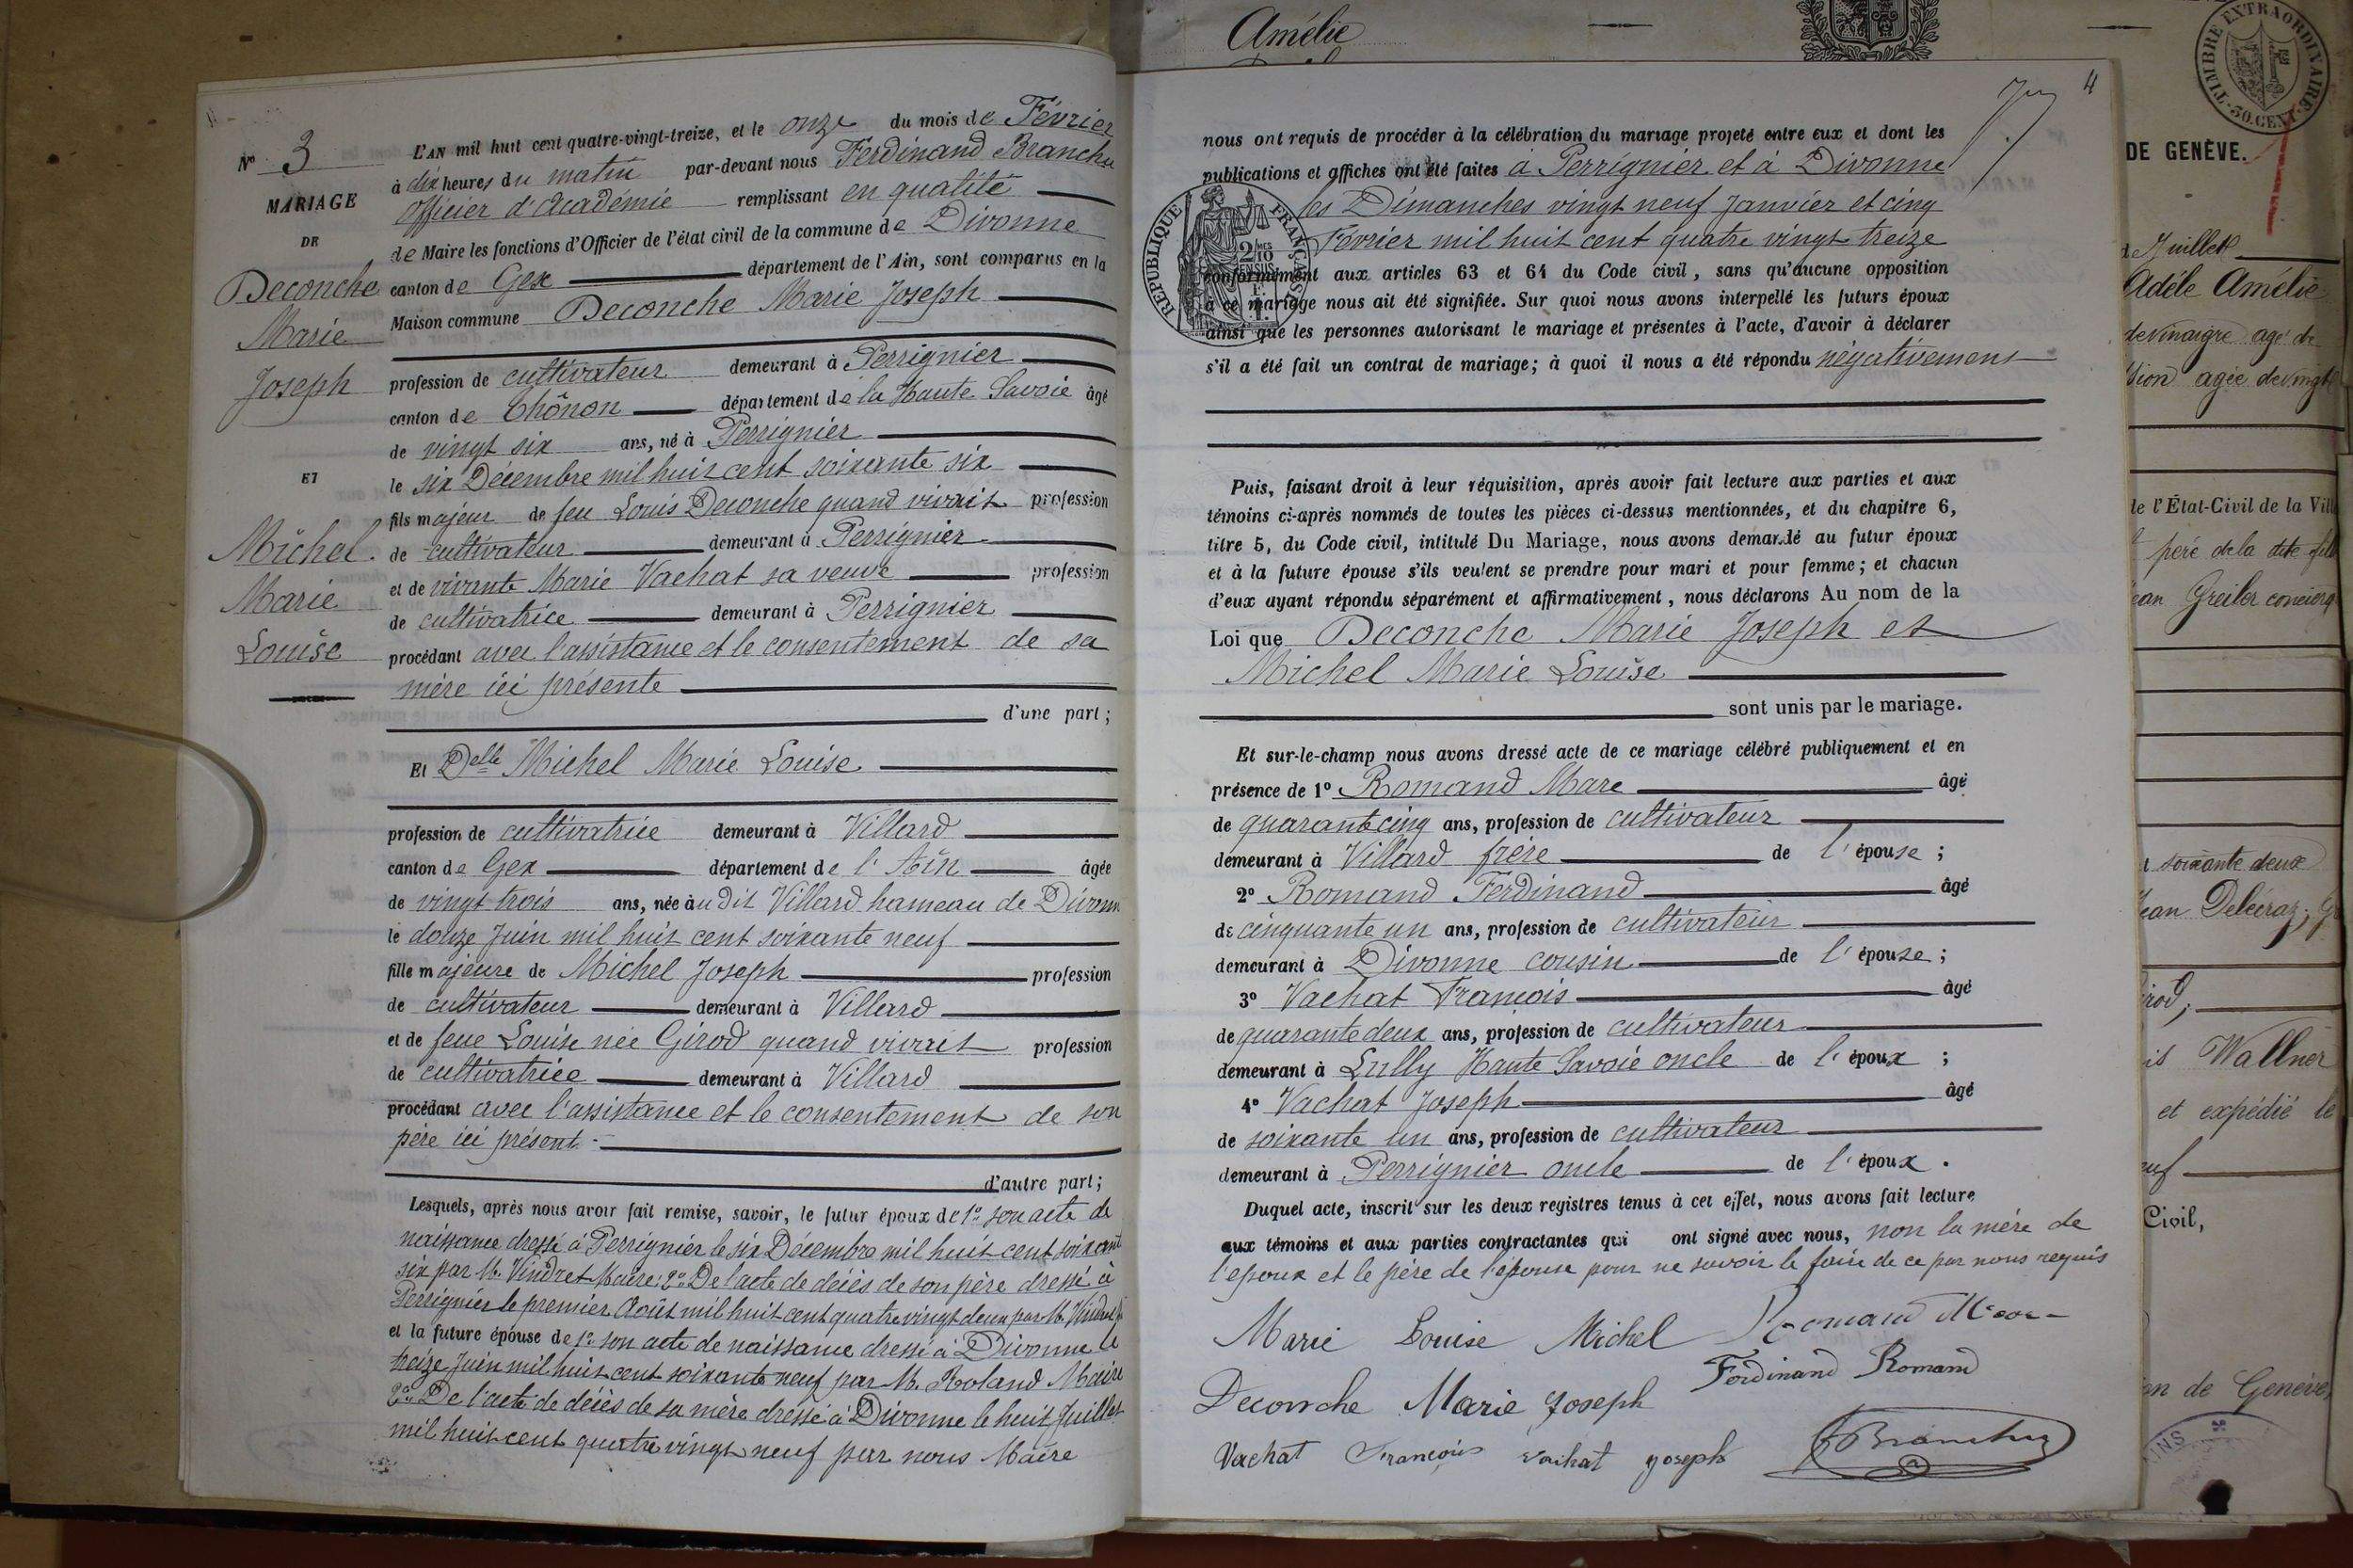 Nº 3
MARIAGE
DE
Deconche
Marie
Joseph
ET
Michel
Marie
Louise
L'AN mil huit cent quatre-vingt-treize, et le onze du mois de Février
à dix heures du matin par-devant nous Ferdinand Branchu
Officier d'Académie remplissant en qualité
de Maire les fonctions d'Officier de l'état civil de la commune de Divonne
canton de Gex département de l'Ain, sont comparus en la
Maison commune Deconche Marie Joseph
profession de cultivateur demeurant à Perrignier
canton de Thônon département de la Haute Savoie âgé
de vingt six ans, né à Perrignier
le six Décembre mil huit cent soixante six
fils majeur de feu Louis Deconche quand vivait profession
de cultivateur demeurant à Perrignier
et de vivante Marie Vachat sa veuve profession
de cultivatrice demeurant à Perrignier
procédant avec l'assistance et le consentement de sa
mère ici présente
d'une part;
Et Delle Michel Marie Louise
profession de cultivatrice demeurant à Villard
canton de Gex département de l'Ain âgée
de vingt trois ans, née audit Villard hameau de Divonne
le douze Juin mil huit cent soixante neuf
fille majeure de Michel Joseph profession
de cultivateur demeurant à Villard
et de feue Louise née Girod quand vivait profession
de cultivatrice demeurant à Villard
procédant avec l'assistance et le consentement de son
père ici présent
d'autre part;
Lesquels, après nous avoir fait remise, savoir, le futur époux de 1º son acte de
naissance dressé à Perrignier le six Décembre mil huit cent soixante
six par M. Vindret Maire; 2º De l'acte de décès de son père dressé à
Perrignier le premier Août mil huit cent quatre vingt deux par M. Vindret
et la future épouse de 1º son acte de naissance dressé à Divonne le
treize Juin mil huit cent soixante neuf par M. Roland Maire
2º De l'acte de décès de sa mère dressé à Divonne le huit Juillet
mil huit cent quatre vingt neuf par nous Maire
4
nous ont requis de procéder à la célébration du mariage projeté entre eux et dont les
publications et affiches ont été faites à Perrignier et à Divonne
les Dimanches vingt neuf Janvier et cinq
Février mil huit cent quatre vingt treize
conformément aux articles 63 et 64 du Code civil, sans qu'aucune opposition
à ce mariage nous ait été signifiée. Sur quoi nous avons interpellé les futurs époux
ainsi que les personnes autorisant le mariage et présentes à l'acte, d'avoir à déclarer
s'il a été fait un contrat de mariage; à quoi il nous a été répondu négativement
RÉPUBLIQUE FRANÇAISE
Puis, faisant droit à leur réquisition, après avoir fait lecture aux parties et aux
témoins ci-après nommés de toutes les pièces ci-dessus mentionnées, et du chapitre 6,
titre 5, du Code civil, intitulé Du Mariage, nous avons demandé au futur époux
et à la future épouse s'ils veulent se prendre pour mari et pour femme; et chacun
d'eux ayant répondu séparément et affirmativement, nous déclarons Au nom de la
Loi que Deconche Marie Joseph et
Michel Marie Louise
sont unis par le mariage.
Et sur-le-champ nous avons dressé acte de ce mariage célébré publiquement et en
présence de 1º Romand Marc âgé
de quarante cinq ans, profession de cultivateur
demeurant à Villard frère de l'épouse;
2º Romand Ferdinand âgé
de cinquante un ans, profession de cultivateur
demeurant à Divonne cousin de l'épouse;
3º Vachat François âgé
de quarante deux ans, profession de cultivateur
demeurant à Lully Haute Savoie oncle de l'époux;
4º Vachat Joseph âgé
de soixante un ans, profession de cultivateur
demeurant à Perrignier oncle de l'époux.
Duquel acte, inscrit sur les deux registres tenus à cet effet, nous avons fait lecture
aux témoins et aux parties contractantes qui ont signé avec nous, non la mère de
l'époux et le père de l'épouse pour ne savoir le faire de ce par nous requis
Marie Louise Michel Romand Marc
Ferdinand Romand
Deconche Marie Joseph
Vachat François Vachat Joseph FBranchu
Amélie
TIMBRE EXTRAORDINAIRE
50.CENT
DE GENÈVE.
de Juillet
Adèle Amélie
de vinaigre agé de
agée de vingt
de l'État-Civil de la Ville
père de la dite fille
Greiler concierge
soixante deux
Jean Delécraz,
Wallner
et expédié le
Civil,
de Genève,